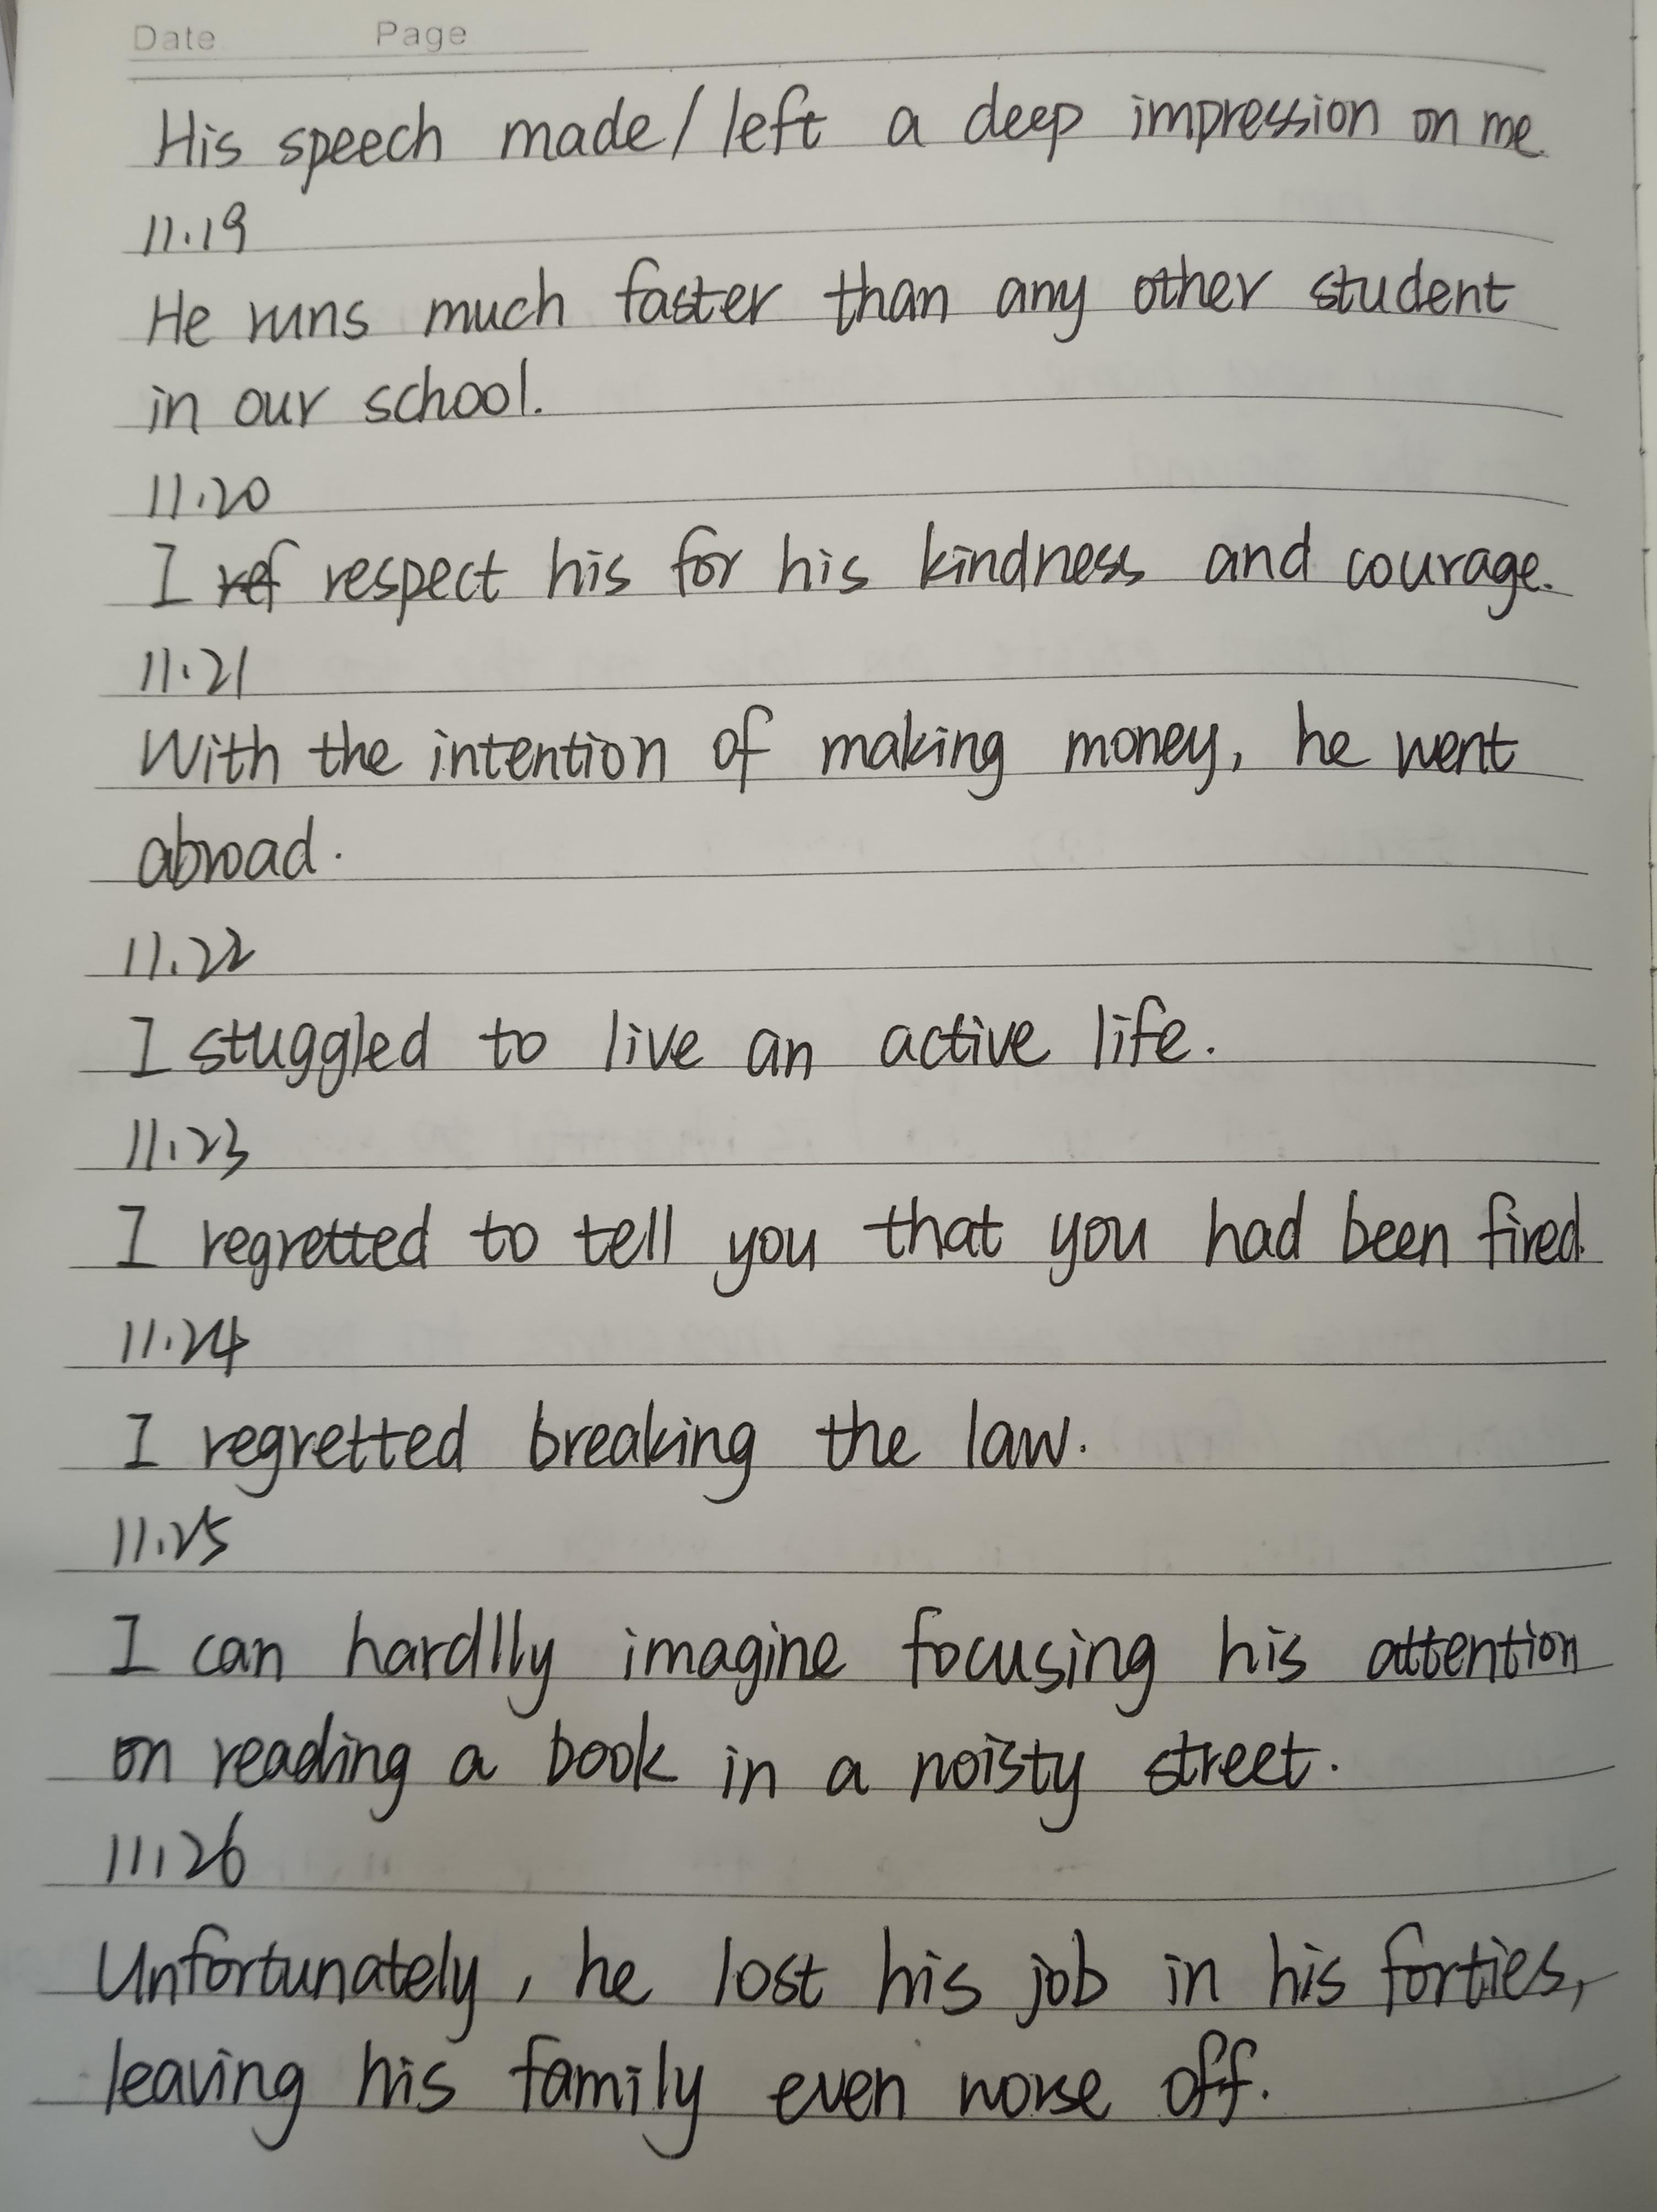 Date Page
His speech made/left a deep impression on me.
11.19
He runs much faster than any other student
in our school.
11.20
I ref respect his for his kindness and courage.
11.21
With the intention of making money, he went
abroad.
11.22
I stuggled to live an active life.
11.23
I regretted to tell you that you had been fired.
11.24
I regretted breaking the law.
11.25
I can hardlly imagine focusing his attention
on reading a book in a noisty street.
11.26
Unfortunately, he lost his job in his forties,
leaving his family even worse off.